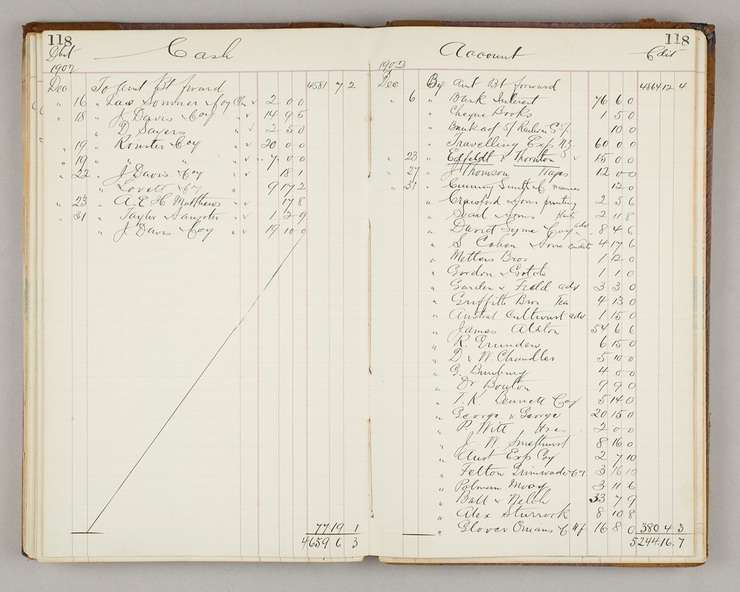 118
Cash
Dbt
1902
Dec To amt Bt forward 4581 7 2
" 16 " Sommer & Coy 2 0 0
" 18 " J Davis & Coy 14 9 5
" D Sayers 2 5 0
" 19 " Rouster & Coy 20 0 0
" 19 " " 7 0 0
" 22 " J Davis & Coy 18 1
" Lovett & Coy 9 17 2
" 23 " A. E. H. Matthews 17 8
" 31 " Taylor & Sangster 1 2 9
" J Davis & Coy 19 10 0
77 19 1
4659 6 3
118
Account
Cdit
1902
Dec By Amt Bt forward 4864 12 4
" 6 " Bank Interest 76 6 0
" Cheque Books 1 5 0
" Bank 10 0
" Travelling Exp N.Z. 60 0 0
" 23 " & Thornton 15 0 0
" 27 " J Thomson 12 0 0
" 31 " Cuming Smith & C 12 0
" Crawford & Sons printing 2 5 6
" & Sons 2 11 8
" David Syme & Coy ads 8 4 6
" S Cohen & Sons 4 17 6
" Metters Bros 1 12 0
" Gordon & Gotch 1 1 0
" Garden & Field ads 3 3 0
" Griffith Bros Tea 4 13 0
" Austral Culturist ads 1 15 0
" James Alston 54 6 6
" R. 6 15 0
" D & W. Chandler 5 10 0
" G. 4 0 0
" Dr Boulton 9 9 0
" T. K. Bennett & Coy 5 14 0
" George & George 20 15 0
" P. Witt 2 0 0
" J. W. Smethurst 8 16 0
" Aust Exp Coy 2 7 10
" Felton Grimwade & Co 3 16
" Polman Mooy 3 11 6
" Ball & Welch 33 7 9
" Alex Sturrock 8 10 8
" Glover Onians & C 16 8 0 380 4 3
5244 16 7